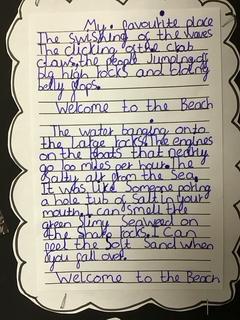 My favourite place
The swishing of the waves
The clicking of the crab
claws. the people Jumping of
big high rocks and bloing
belly flops.
Welcome to the Beach
The water banging onto
the large rocks. The engines
on the boats that neally
go 100 miles per hour. The
salty air from the Sea.
It was like someone poring
a hole tub of Salt in your
mouth. I can smell the
green slimy Seaweed on
the shale rocks. I Can
feel the Soft Sand when
you fall over.
Welcome to the Beach